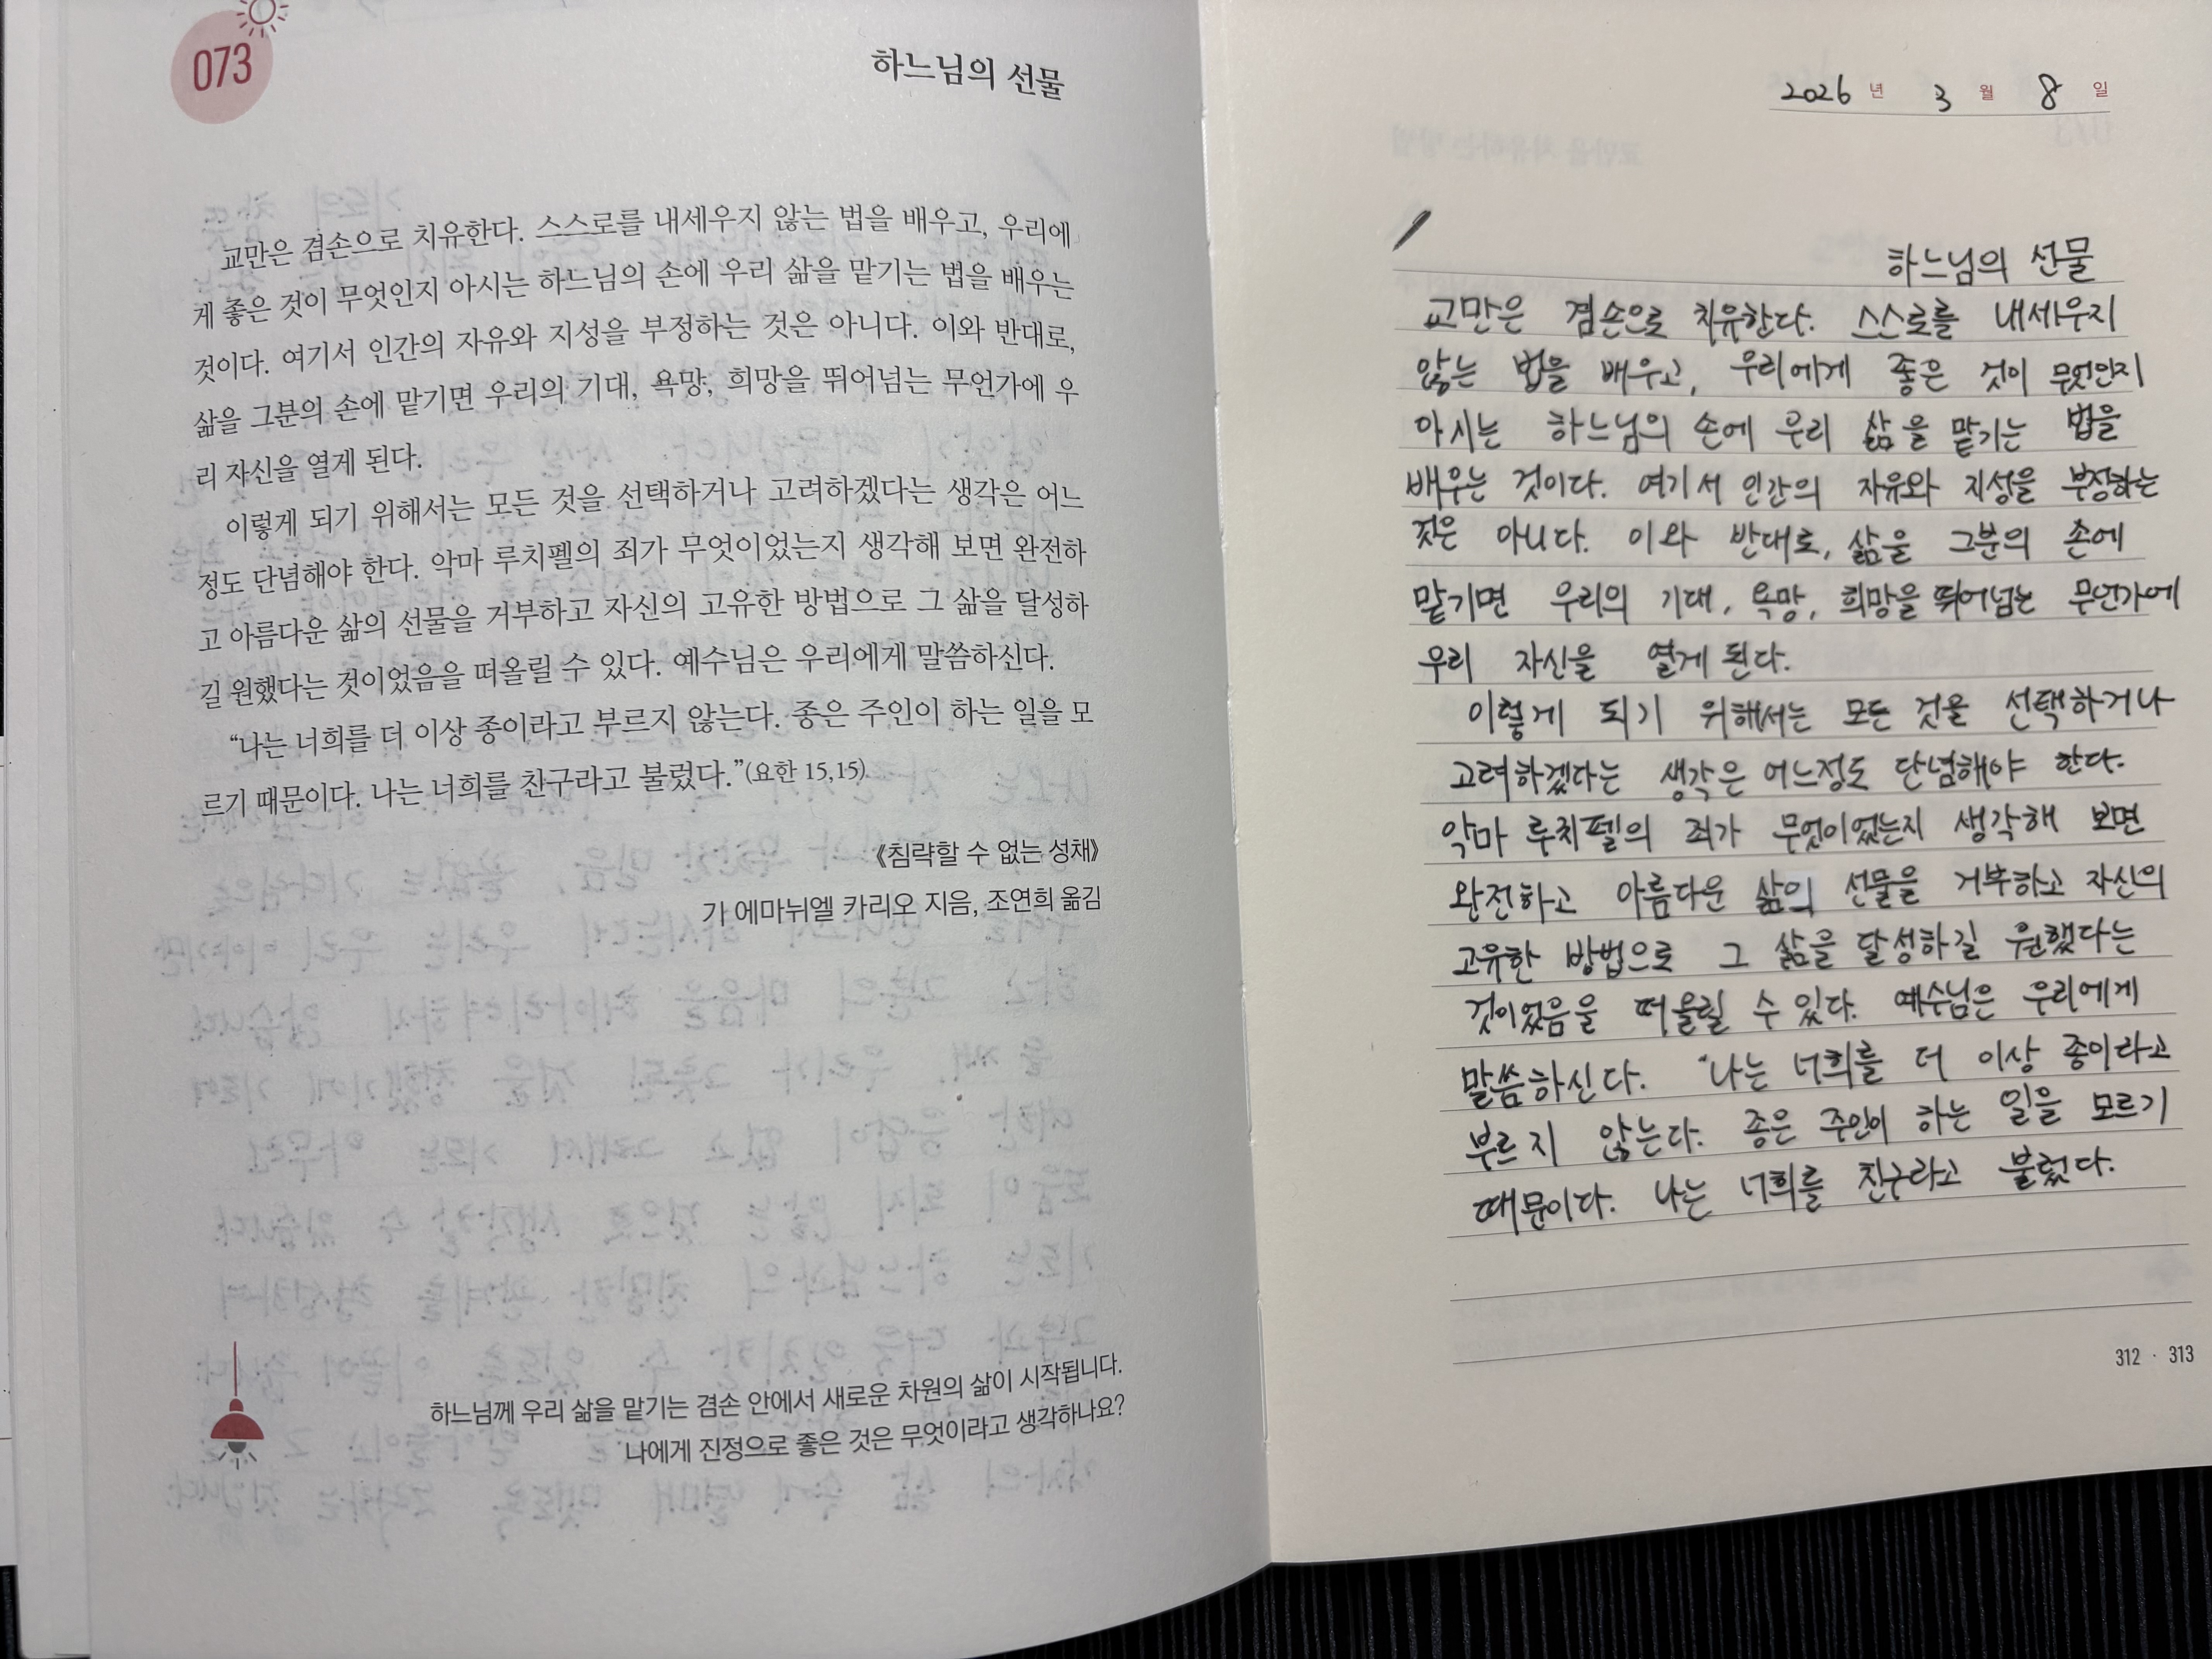 073
하느님의 선물
교만은 겸손으로 치유한다. 스스로를 내세우지 않는 법을 배우고, 우리에
게 좋은 것이 무엇인지 아시는 하느님의 손에 우리 삶을 맡기는 법을 배우는
것이다. 여기서 인간의 자유와 지성을 부정하는 것은 아니다. 이와 반대로,
삶을 그분의 손에 맡기면 우리의 기대, 욕망, 희망을 뛰어넘는 무언가에 우
리 자신을 열게 된다.
이렇게 되기 위해서는 모든 것을 선택하거나 고려하겠다는 생각은 어느
정도 단념해야 한다. 악마 루치펠의 죄가 무엇이었는지 생각해 보면 완전하
고 아름다운 삶의 선물을 거부하고 자신의 고유한 방법으로 그 삶을 달성하
길 원했다는 것이었음을 떠올릴 수 있다. 예수님은 우리에게 말씀하신다.
“나는 너희를 더 이상 종이라고 부르지 않는다. 종은 주인이 하는 일을 모
르기 때문이다. 나는 너희를 친구라고 불렀다.”(요한 15,15)
《침략할 수 없는 성채》
가 에마뉘엘 카리오 지음, 조연희 옮김
하느님께 우리 삶을 맡기는 겸손 안에서 새로운 차원의 삶이 시작됩니다.
나에게 진정으로 좋은 것은 무엇이라고 생각하나요?
2026 년 3 월 8 일
하느님의 선물
교만은 겸손으로 치유한다. 스스로를 내세우지
않는 법을 배우고, 우리에게 좋은 것이 무엇인지
아시는 하느님의 손에 우리 삶을 맡기는 법을
배우는 것이다. 여기서 인간의 자유와 지성을 부정하는
것은 아니다. 이와 반대로, 삶을 그분의 손에
맡기면 우리의 기대, 욕망, 희망을 뛰어넘는 무언가에
우리 자신을 열게 된다.
이렇게 되기 위해서는 모든 것을 선택하거나
고려하겠다는 생각은 어느정도 단념해야 한다.
악마 루치펠의 죄가 무엇이었는지 생각해 보면
완전하고 아름다운 삶의 선물을 거부하고 자신의
고유한 방법으로 그 삶을 달성하길 원했다는
것이었음을 떠올릴 수 있다. 예수님은 우리에게
말씀하신다. “나는 너희를 더 이상 종이라고
부르지 않는다. 종은 주인이 하는 일을 모르기
때문이다. 나는 너희를 친구라고 불렀다.
312 · 313